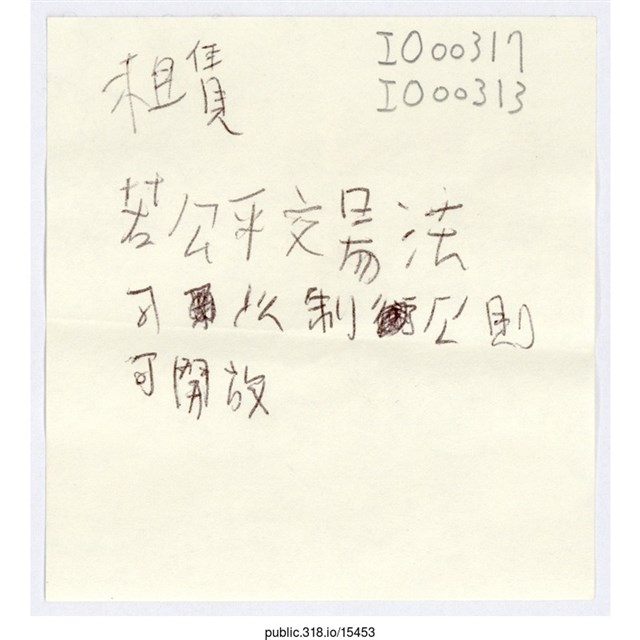 租賃
IO00317
IO00313
若公平交易法
可以制衡公則
可開放
public.318.io/15453